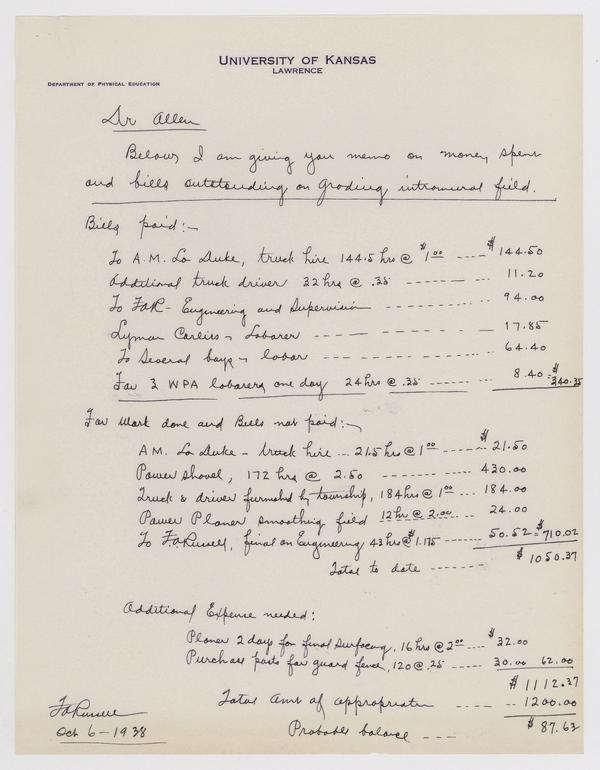 UNIVERSITY OF KANSAS
LAWRENCE
DEPARTMENT OF PHYSICAL EDUCATION
Dr Allen
Below, I am giving you memo on money spent
and bills outstanding on grading intramural field.
Bills paid:-
To A.M. La Duke, truck hire 144.5 hrs @ $1.00 ---- $144.50
Additional truck driver 32 hrs @ .35 ------- 11.20
To FAR - Engineering and Supervision ------- 94.00
Lyman Corliss - Laborer ------- 17.85
To Several boys - labor ------- 64.40
For 3 WPA laborers one day 24 hrs @ .35 ------- 8.40 = $340.35
For Work done and Bills not paid:-
A.M. La Duke - truck hire ... 21.5 hrs @ 1.00 ------ $21.50
Power shovel, 172 hrs @ 2.50 ------- 430.00
Truck & driver furnished by township, 184 hrs @ 1.00 --- 184.00
Power Planer smoothing field 12 hr @ 2.00 ---- 24.00
To F.A. Russell, final on Engineering 43 hrs @ $1.175 ---- 50.52 = $710.02
Total to date ------ $1050.37
Additional Expense needed:
Planer 2 days for final surfacing, 16 hrs @ 2.00 --- $32.00
Purchase posts for guard fence, 120 @ .25 ----- 30.00 62.00
$1112.37
Total Amt of appropriation ---- 1200.00
Probable balance --- $87.63
FA Russell
Oct 6-1938